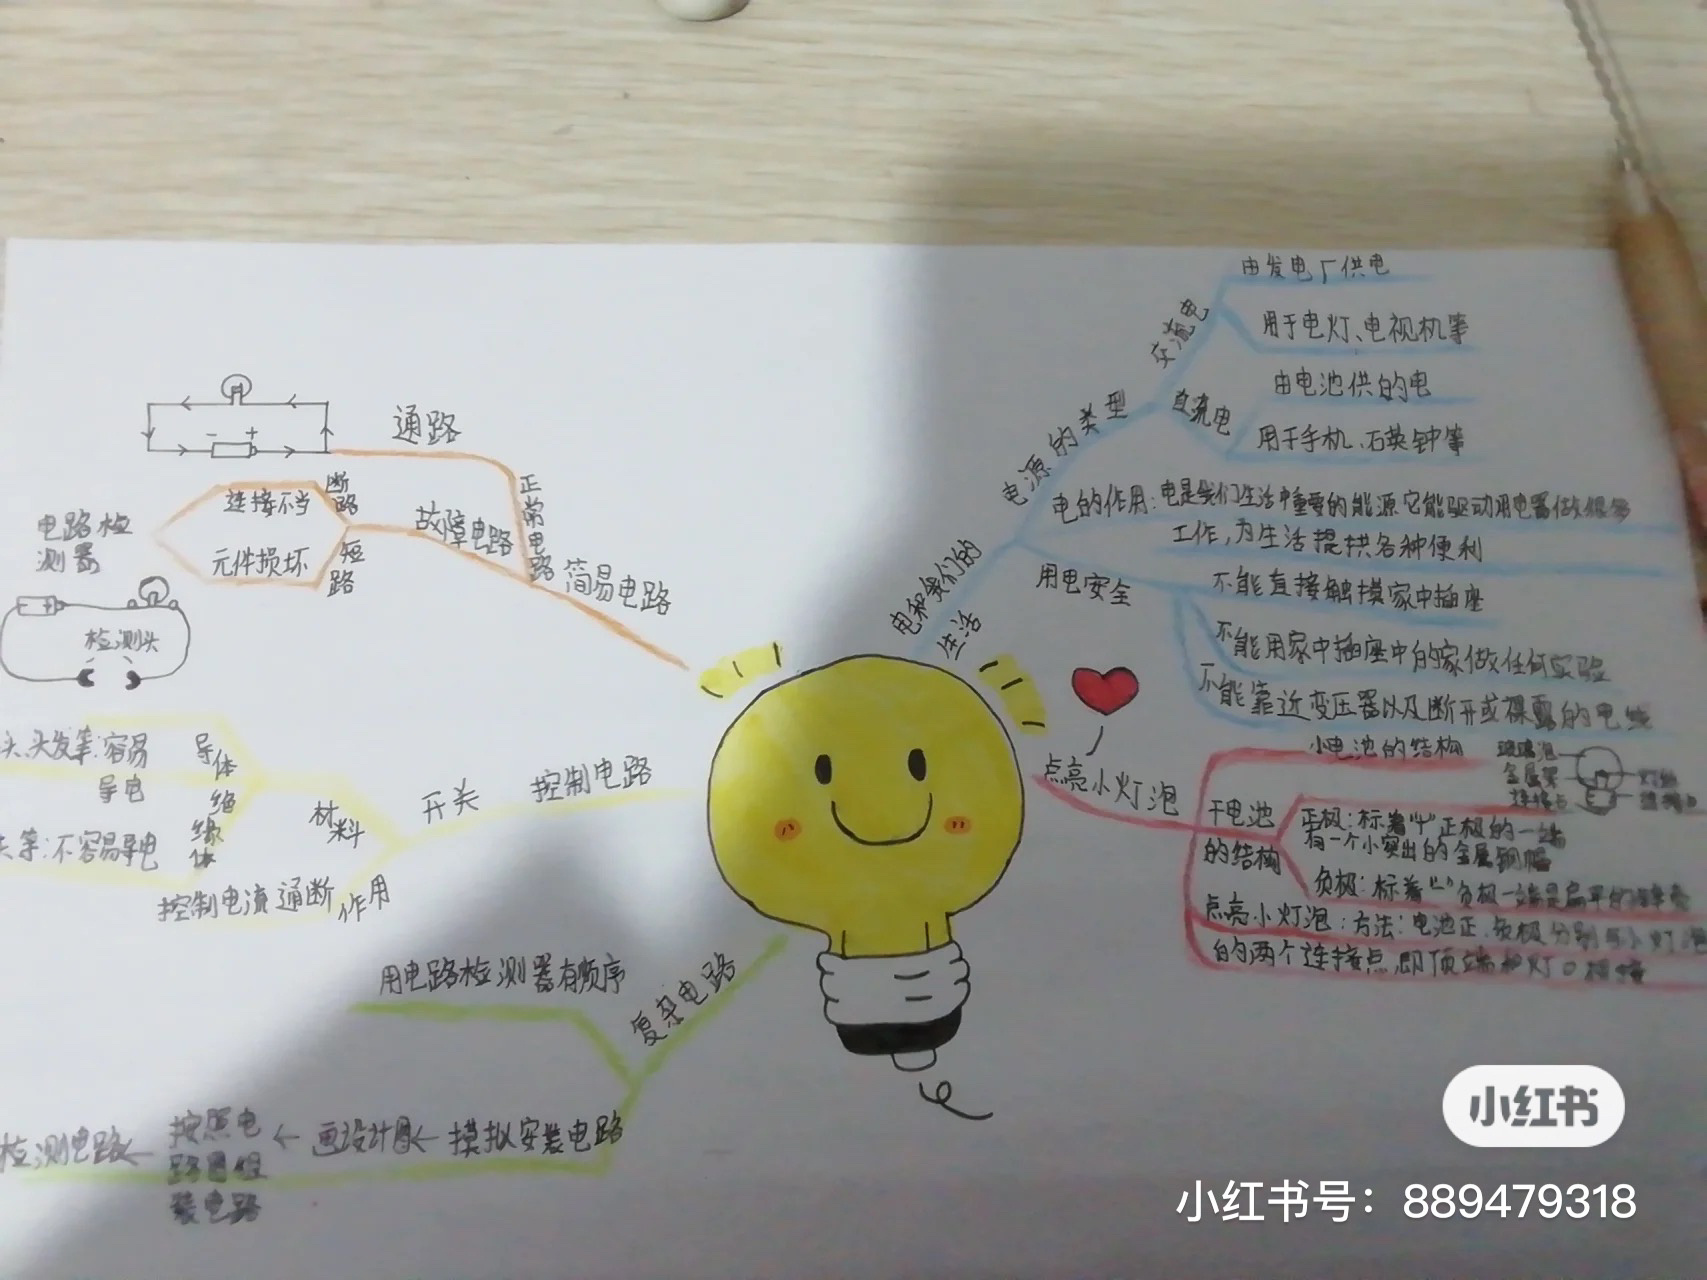 通路
正常电路
断路
连接不当
故障电路
电路检
测器
元件损坏
短路
简易电路
检测头
- +
头发等:容易
导电
导体
绝缘体
等:不容易导电
材料
开关
控制电路
控制电流通断
作用
用电路检测器有顺序
复杂电路
模拟安装电路
画设计图
按照电
路图组
装电路
检测电路
电和我们的
生活
电源的类型
交流电
由发电厂供电
用于电灯、电视机等
直流电
由电池供的电
用于手机、石英钟等
电的作用:电是我们生活中重要的能源它能驱动用电器做很多
工作,为生活提供各种便利
用电安全
不能直接触摸家中插座
不能用家中插座中的家做任何实验
不能靠近变压器以及断开或裸露的电线
点亮小灯泡
小电池的结构
玻璃泡
金属架
连接点
干电池
的结构
正极:标着“+”正极的一端
有一个小突出的金属铜帽
负极:标着“-”负极一端是扁平的
点亮小灯泡:方法:电池正、负极分别与小灯泡
的两个连接点,即顶端和灯口相接
小红书
小红书号:889479318